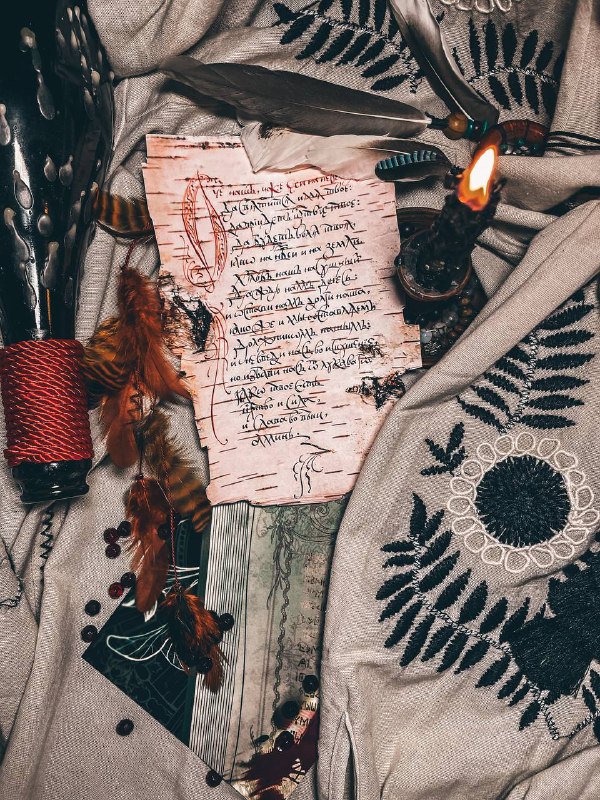 Отче нашъ, иже еси
Да святится имя твое:
Да приидетъ твое:
Да будетъ воля твоя
яко на нбси и на земли
Хлѣбъ нашъ насущный
даждь намъ днесь
и остави намъ долги наша,
якоже и мы оставляемъ
должникомъ нашимъ
и не введи насъ во искушение
но избави насъ лукаваго
яко твое есть
и сила
и слава во веки,
аминь